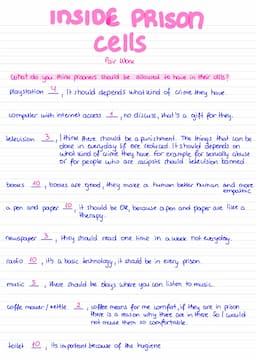 INSIDE PRISON
CELLS
Pair Work
What do you think prisoners should be allowed to have in their cells?
Playstation 4, It should depends what kind of crime they have.
computer with internet access 1, no discuss, that's a gift for they.
television 3, I think there should be a punishment. The things that can be
done in everyday lif are reduced. It should depends on
what kind of crime they have for example for sexually abuse
or for people who are rasipsts should television banned
books 10, books are great, they make a human better human and more
empathic
a pen and paper 10, it should be OK, because a pen and paper are like a
therapy.
newspaper 3, they should read one time in a week not everyday.
radio 10, it's a basic technology, it should be in every prison
music 2, there should be days where you can listen to music.
coffe maker / kettle 2, coffee means for me comfort, if they are in prison
there is a reason why there are in there. So I would
not made them so comfortable.
toilet 10, its important because of the hygiene